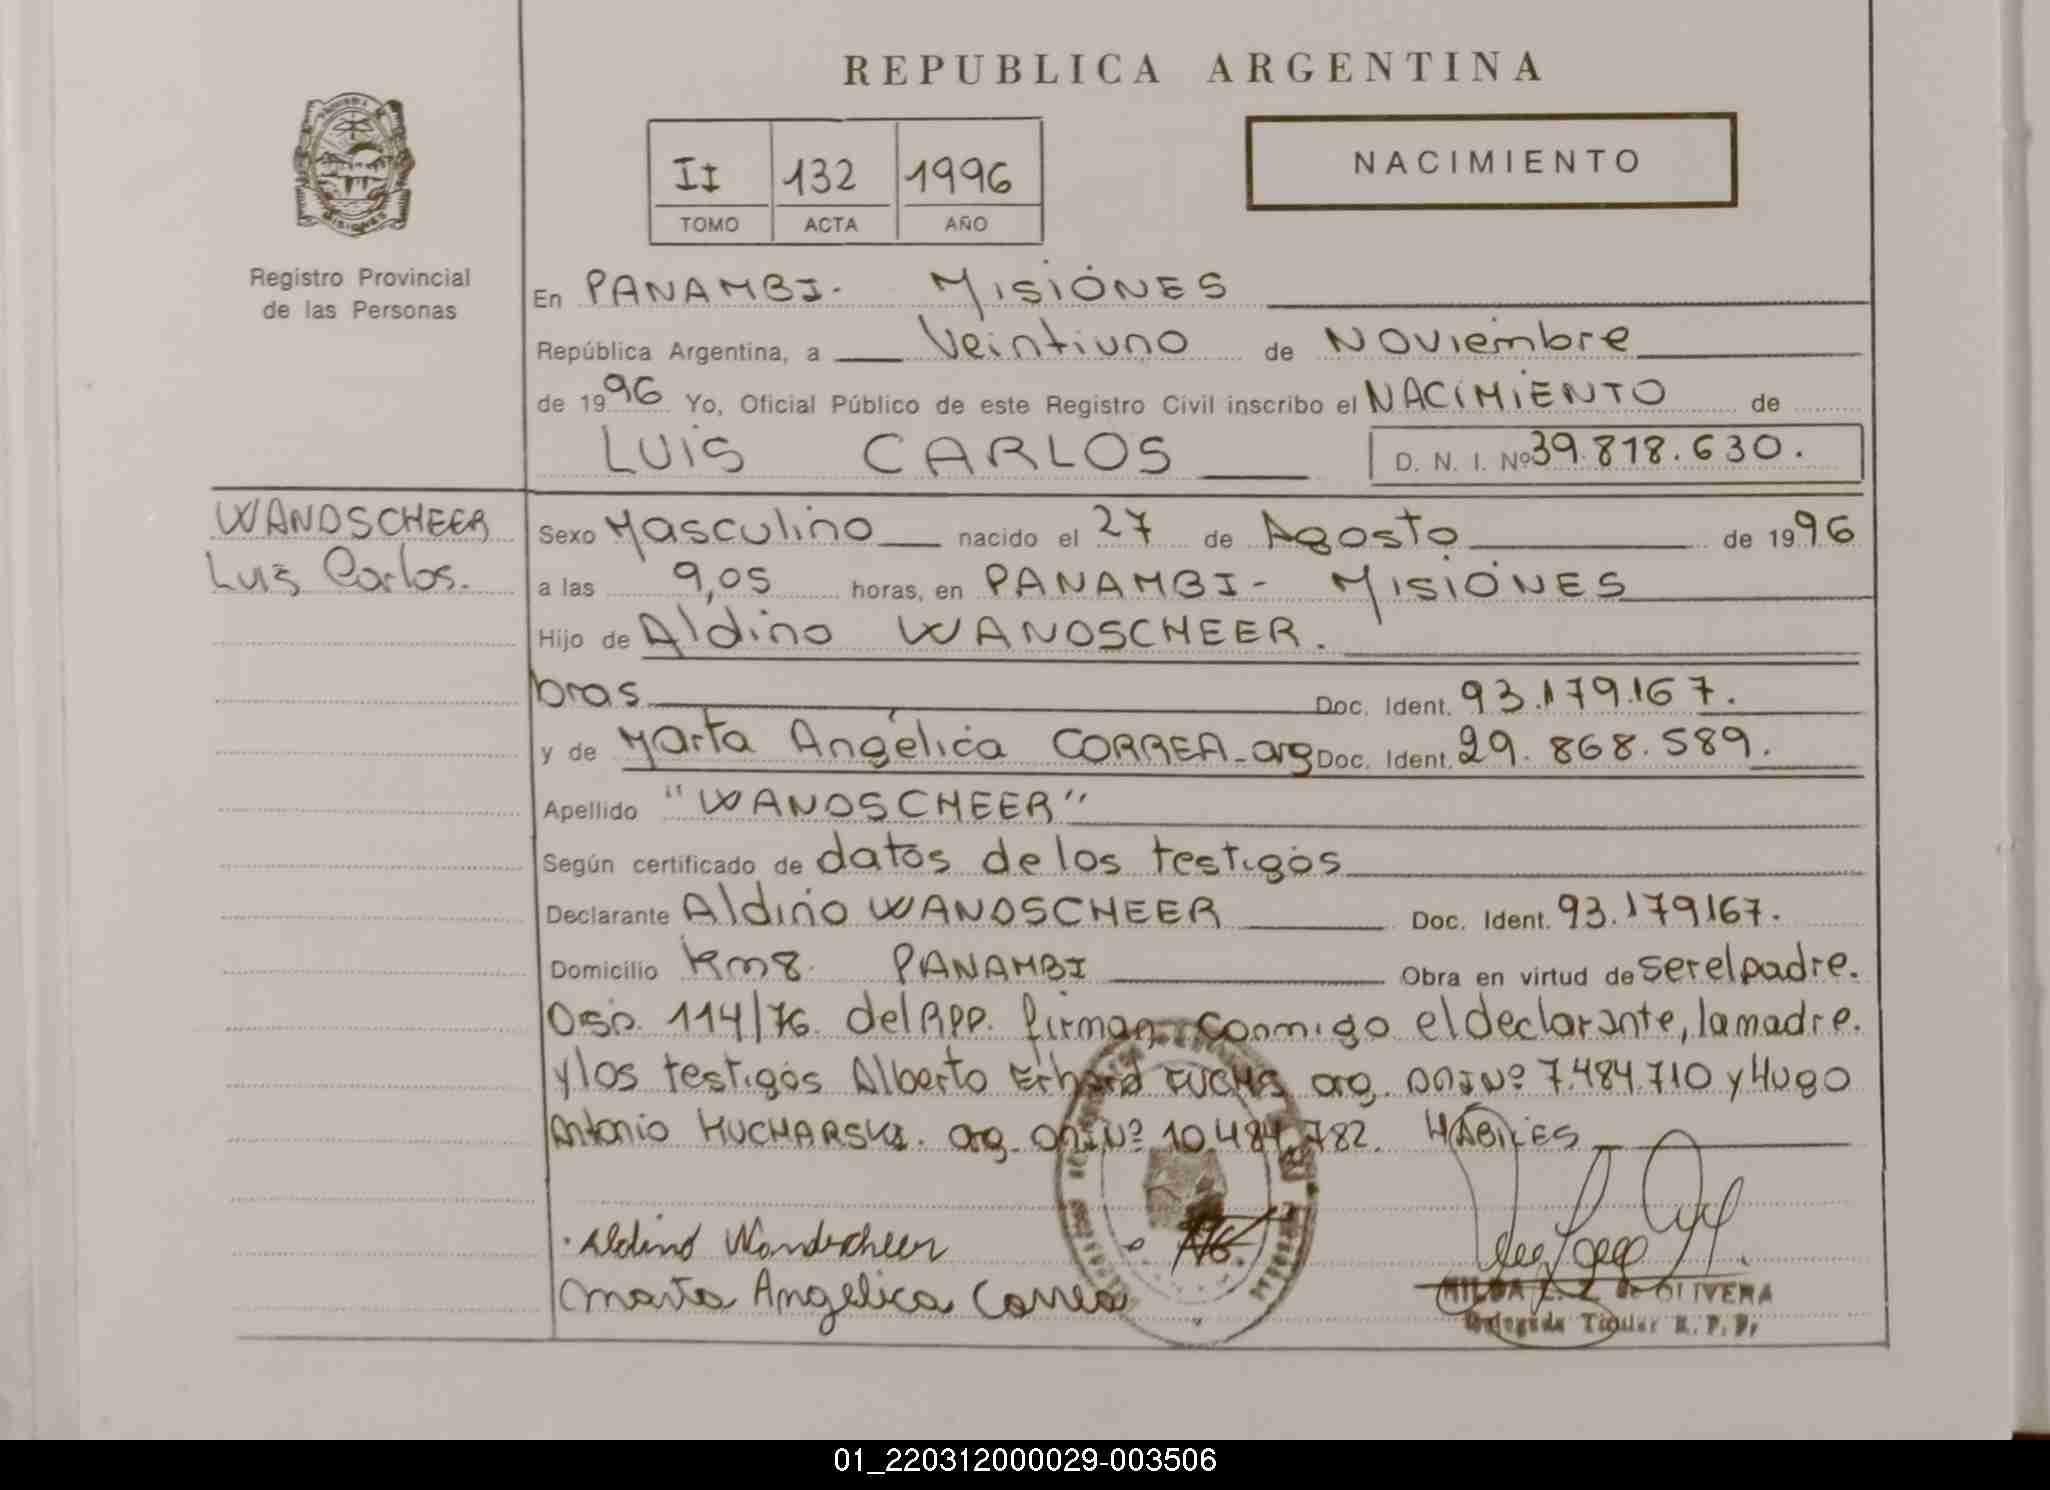 REPUBLICA ARGENTINA
NACIMIENTO
II 132 1996
TOMO ACTA AÑO
Registro Provincial
de las Personas
En PANAMBI. MISIONES
República Argentina, a Veintiuno de Noviembre
de 1996 Yo, Oficial Público de este Registro Civil inscribo el NACIMIENTO de
LUIS CARLOS D. N. I. Nº 39.818.630.
WANDSCHEER
Luis Carlos.
Sexo Masculino nacido el 27 de Agosto de 1996
a las 9,05 horas, en PANAMBI - MISIONES
Hijo de Aldino WANDSCHEER.
bras Doc. Ident. 93.179.167.
y de Marta Angélica CORREA - arg Doc. Ident. 29.868.589.
Apellido "WANDSCHEER"
Según certificado de datos de los testigos
Declarante Aldino WANDSCHEER Doc. Ident. 93.179167.
Domicilio Km 8. PANAMBI Obra en virtud de ser el padre.
Disp. 114/76. del RPP. firman conmigo el declarante, la madre.
y los testigos Alberto Erhard FUCHS arg. DNI Nº 7.484.710 y Hugo
Antonio KUCHARSKI. arg. DNI Nº 10.484.782. HÁBILES
Aldino Wandscheer
Marta Angelica Correa
HILDA de OLIVERA
Delegada Titular R. P. P.
MISIONES
01_220312000029-003506